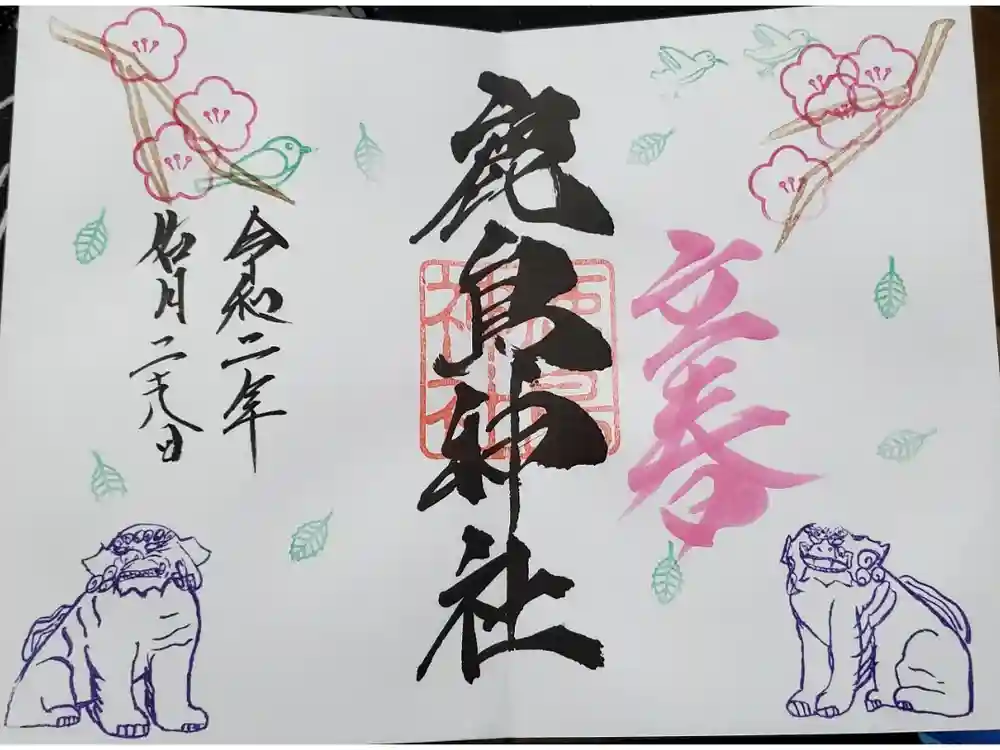 立春
鹿島神社
令和二年
如月二十八日